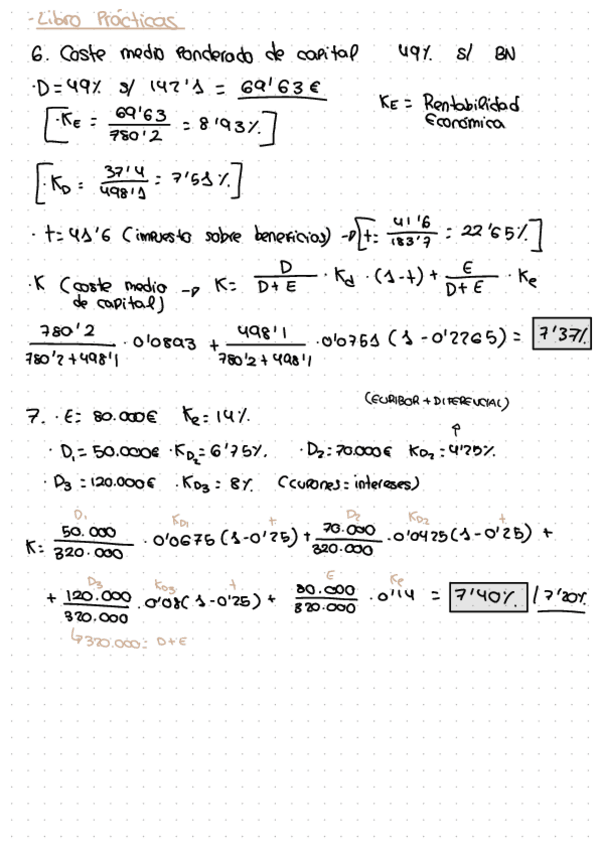 -Libro Prácticas
6. Coste medio Ponderado de capital 49% s/ BN
·D=49% s/ 142'1 = 69'63€
[·KE = 69'63/780'2 = 8'93%] KE = Rentabilidad Económica
[·KD = 37'4/498'1 = 7'51%]
· t=41'6 (impuesto sobre beneficios) → [t= 41'6/183'7 = 22'65%]
·K (coste medio de capital) → K= D/D+E · Kd · (1-t) + E/D+E · Ke
780'2/780'2+498'1 · 0'0893 + 498'1/780'2+498'1 · 0'0751 (1-0'2265) = 7'37%
(EURIBOR + DIFERENCIAL)
7. ·E= 80.000€ Ke=14%
· D1=50.000€ ·KD2=6'75% · D2=70.000€ KD2=4'25%
· D3=120.000€ ·KD3=8% (cupones=intereses)
D1 KD1 t D2 KD2 t
K= 50.000/320.000 · 0'0675 (1-0'25) + 70.000/320.000 · 0'0425 (1-0'25) +
D3 KD3 t E Ke
+ 120.000/320.000 · 0'08 (1-0'25) + 80.000/320.000 · 0'14 = 7'40% / 7'20%
↳320.000= D+E